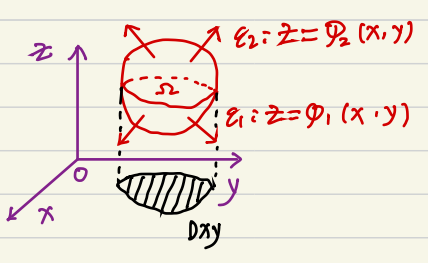 z
ε₂: z = φ₂(x, y)
Ω
ε₁: z = φ₁(x · y)
O
y
x
Dxy